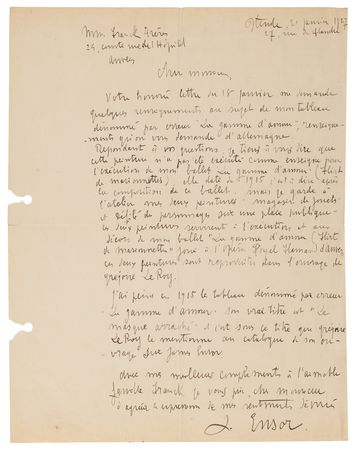 Ostende 21 janvier 1927
27, rue de Flandre
Mm Franck Frères
Anvers
Cher monsieur,
Votre honorée lettre du 18 janvier me demande
quelques renseignements au sujet de mon tableau
dénommé par erreur "La gamme d'amour", renseigne-
ments qu'on vous demande d'allemagne
Répondant à vos questions, je tiens à vous dire que
cette peinture n'a pas été exécutée comme enseigne pour
l'exécution de mon ballet La gamme d'amour (flirt
de marionnettes), elle date de 1915, c'est à dire après
la composition de ce ballet. mais je garde à
l'atelier mes deux peintures "magasin de jouets"
et défilé de personnages sur une place publique
ces deux peintures servirent à l'exécution et aux
décors de mon ballet La gamme d'amour (flirt
de marionnettes) joué à l'Opéra Royal Flamand d'anvers,
ces deux peintures sont reproduites dans l'ouvrage de
grégoire Le Roy.
J'ai peint en 1915 le tableau dénommé par erreur
La gamme d'amour. Son vrai titre est "Le
masque arraché" et c'est sous ce titre que grégoire
Le Roy le mentionne au catalogue de son ou-
vrage sur James Ensor
avec mes meilleurs compliments à l'aimable
famille Franck, je vous prie, cher monsieur
d'agréer l'expression de mes sentiments dévoués
J. Ensor